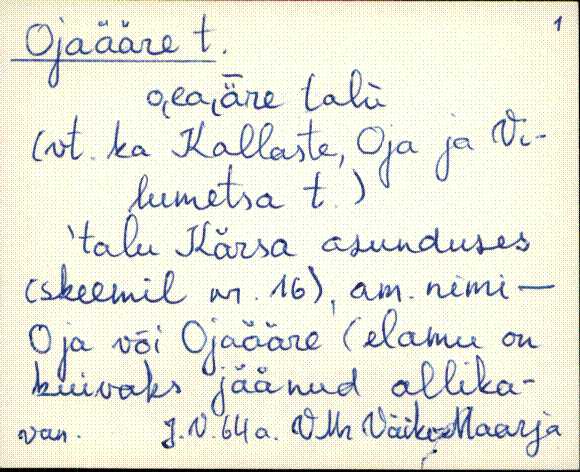 1
Ojaääre t.
o̭ea̭ǟre talù
(vt. ka Kallaste, Oja ja Vi-
lumetsa t.)
'talu Kärsa asunduses
(skeemil nr. 16), am. nimi —
Oja või Ojaääre (elamu on
kuivaks jäänud allika-
van. J.V. 64 a. VMr Väike-Maarja